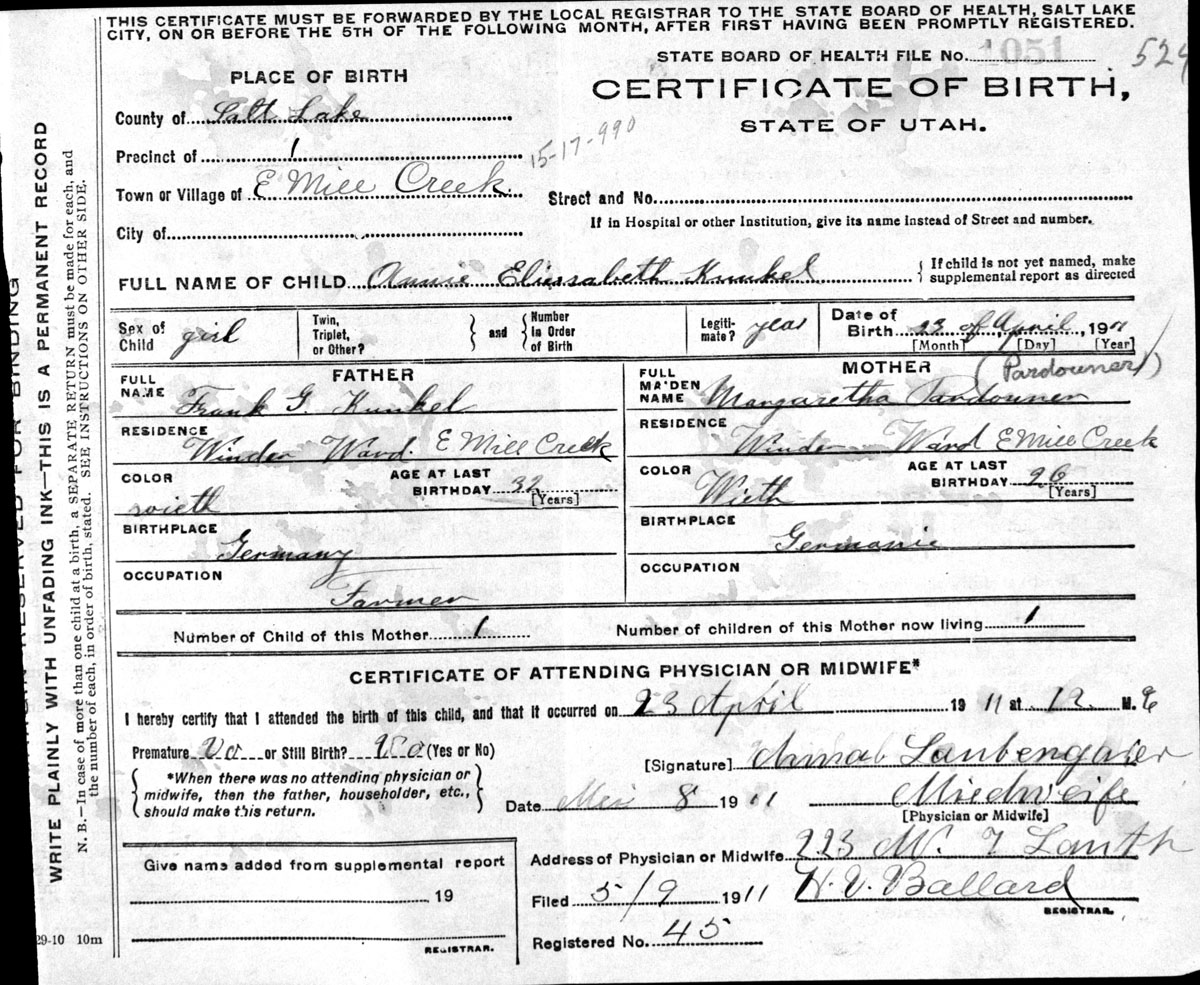 THIS CERTIFICATE MUST BE FORWARDED BY THE LOCAL REGISTRAR TO THE STATE BOARD OF HEALTH, SALT LAKE
CITY, ON OR BEFORE THE 5TH OF THE FOLLOWING MONTH, AFTER FIRST HAVING BEEN PROMPTLY REGISTERED.
STATE BOARD OF HEALTH FILE No. 1051
524
PLACE OF BIRTH
CERTIFICATE OF BIRTH,
STATE OF UTAH.
County of Salt Lake
Precinct of 1
15-17-990
Town or Village of E Mill Creek
Street and No.
If in Hospital or other Institution, give its name instead of Street and number.
City of
FULL NAME OF CHILD Annie Eliessabeth Kunkel { If child is not yet named, make
supplemental report as directed
Sex of Child girl
Twin, Triplet, or Other? } and { Number in Order of Birth
Legiti-mate? year
Date of Birth 23 of April, 191
[Month] [Day] [Year]
FATHER
MOTHER (Pardouner)
FULL NAME Frank G. Kunkel
FULL MAIDEN NAME Margaretha Pardouner
RESIDENCE Winder Ward. E Mill Creek
RESIDENCE Winder Ward E Mill Creek
COLOR wieth
AGE AT LAST BIRTHDAY 32 [Years]
COLOR Wieth
AGE AT LAST BIRTHDAY 26 [Years]
BIRTHPLACE Germany
BIRTHPLACE Germanie
OCCUPATION Farmer
OCCUPATION
Number of Child of this Mother 1
Number of children of this Mother now living 1
CERTIFICATE OF ATTENDING PHYSICIAN OR MIDWIFE*
I hereby certify that I attended the birth of this child, and that it occurred on 23 April 1911 at 12 M.
Premature No or Still Birth? No (Yes or No)
[Signature] Laubengaier
{ *When there was no attending physician or
midwife, then the father, householder, etc.,
should make this return. }
Date Mei 8 1911
Miedweife
[Physician or Midwife]
Give name added from supplemental report
19
REGISTRAR.
Address of Physician or Midwife 223 W. 7 Lauth
Filed 5/9 1911 H. V. Ballard
REGISTRAR.
Registered No. 45
29-10 10m
RESERVED FOR BINDING
WRITE PLAINLY WITH UNFADING INK—THIS IS A PERMANENT RECORD
N. B.—In case of more than one child at a birth, a SEPARATE RETURN must be made for each, and
the number of each, in order of birth, stated. SEE INSTRUCTIONS ON OTHER SIDE.